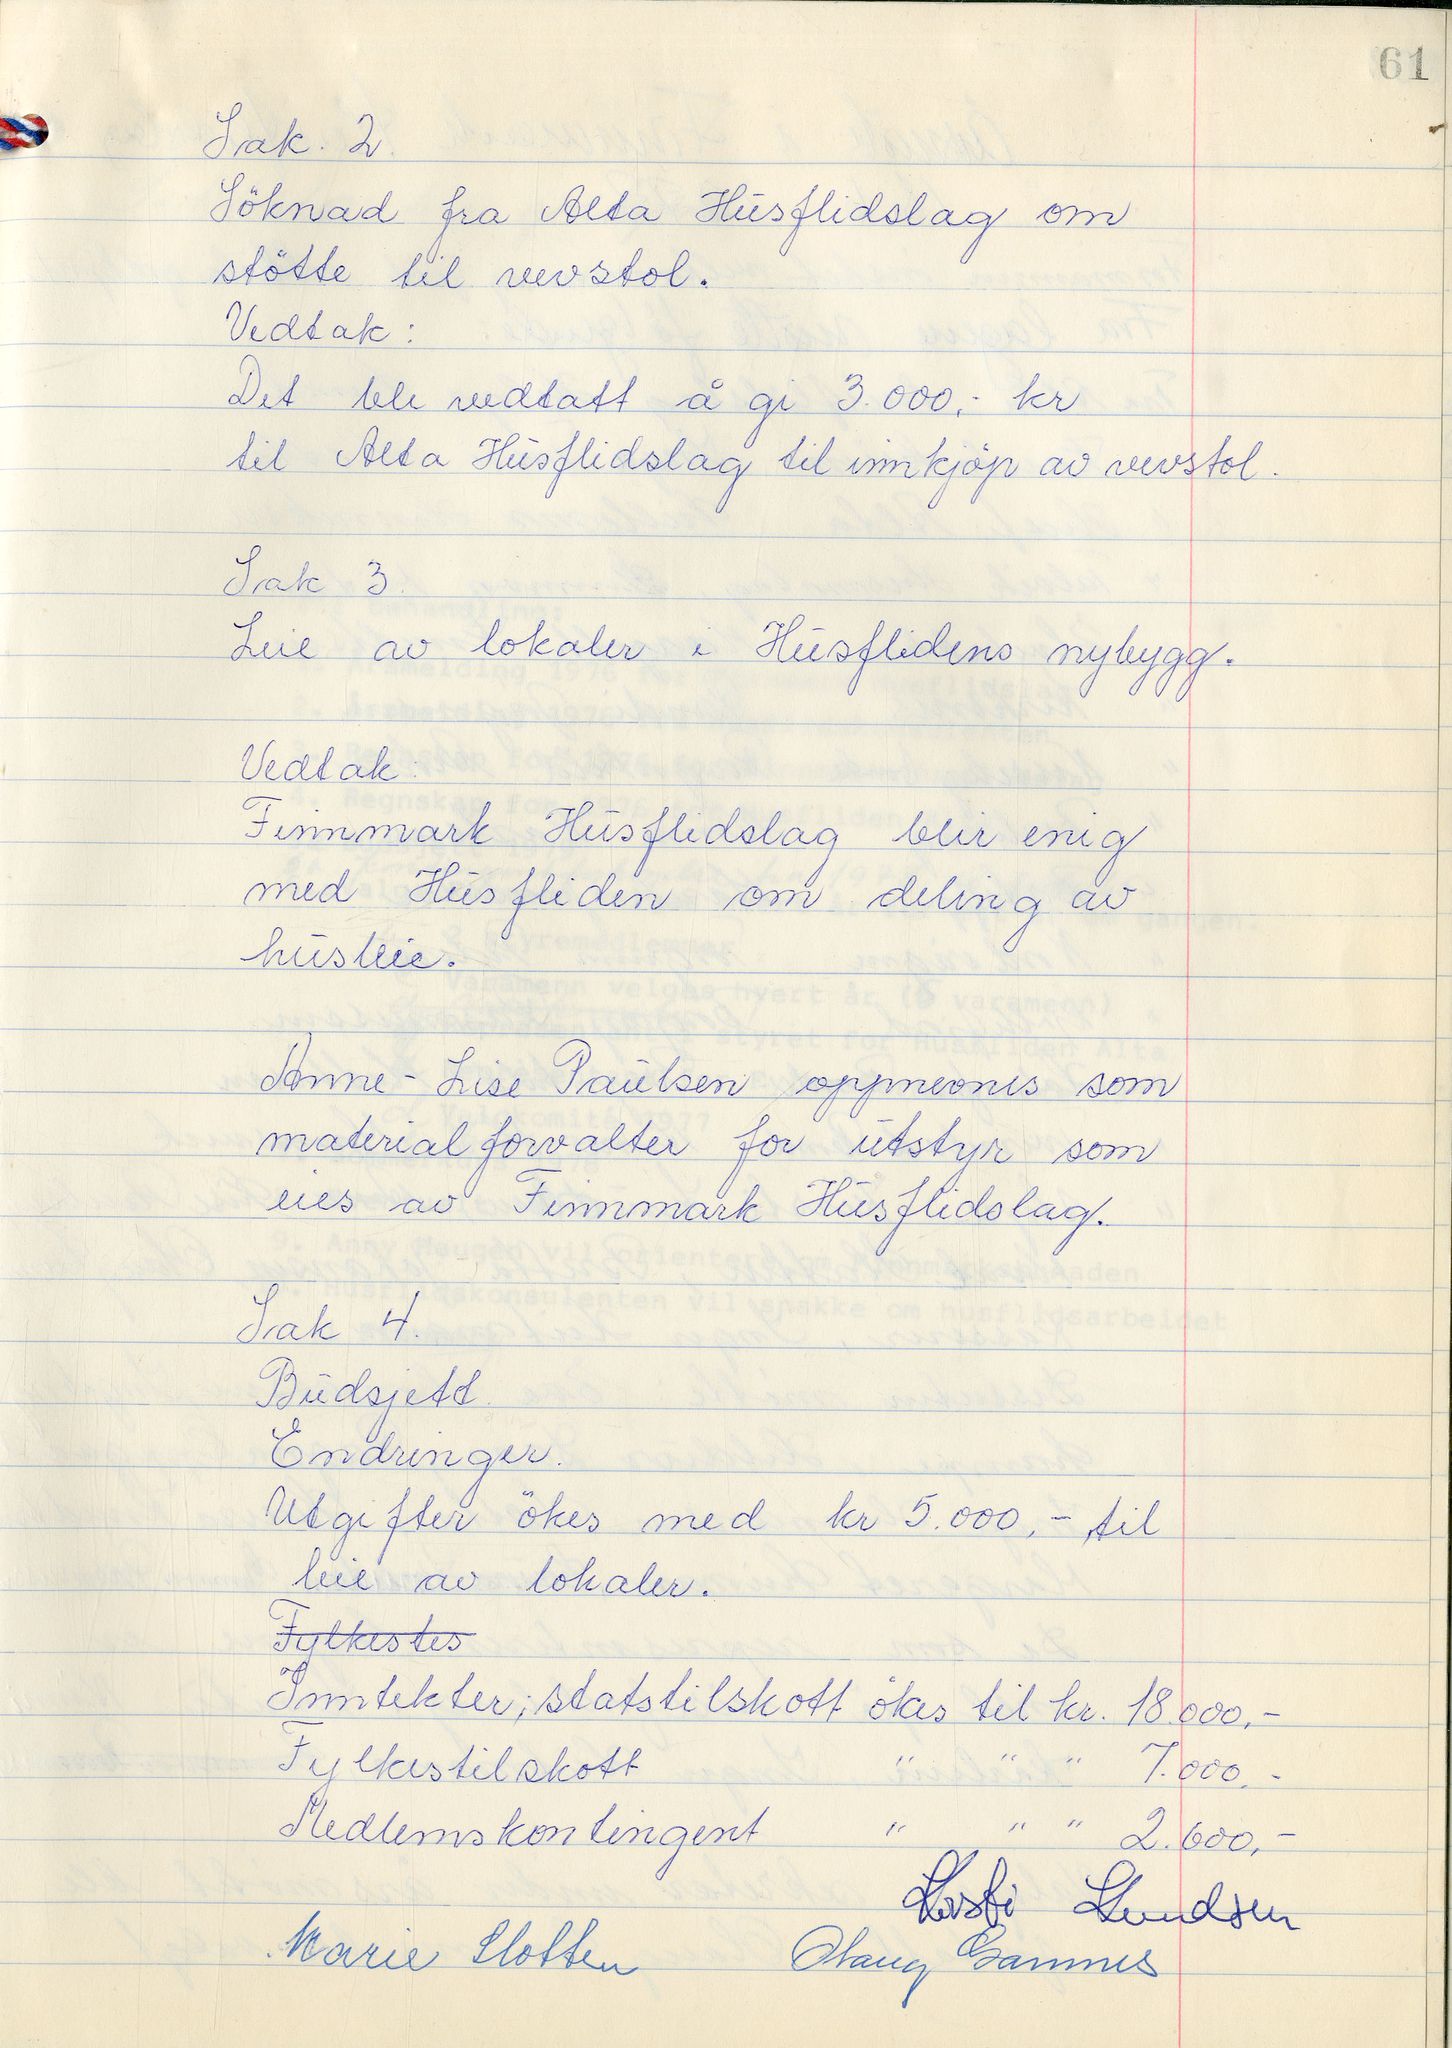 61
Sak. 2.
Söknad fra Alta Husflidslag om
stötte til vevstol.
Vedtak:
Det ble vedtatt å gi 3.000,- kr
til Alta Husflidslag til innkjöp av vevstol.
Sak 3.
Leie av lokaler i Husflidens nybygg.
Vedtak:
Finnmark Husflidslag blir enig
med Husfliden om deling av
husleie.
Anne-Lise Paulsen oppnevnes som
materialforvalter for utstyr som
eies av Finnmark Husflidslag.
Sak 4.
Budsjett.
Endringer.
Utgifter ökes med kr 5.000,- til
leie av lokaler.
Fylkestes
Inntekter; statstilskott ökes til kr. 18.000,-
Fylkestilskott " " " 7.000,-
Medlemskontingent " " " 2.600,-
Marie Slotten